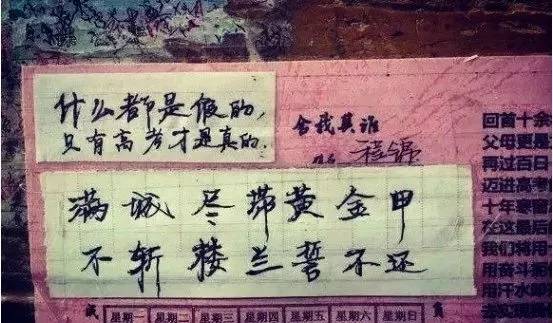 什么都是假的,
只有高考才是真的.
舍我其谁
程锦
满城尽带黄金甲
不斩楼兰誓不还
回首十余
父母更是
再过百日
迈进高考
十年寒窗
在这最后
我们将用
用奋斗
用汗水
星期一 星期二 星期三 星期四 星期五 星期六 星期日